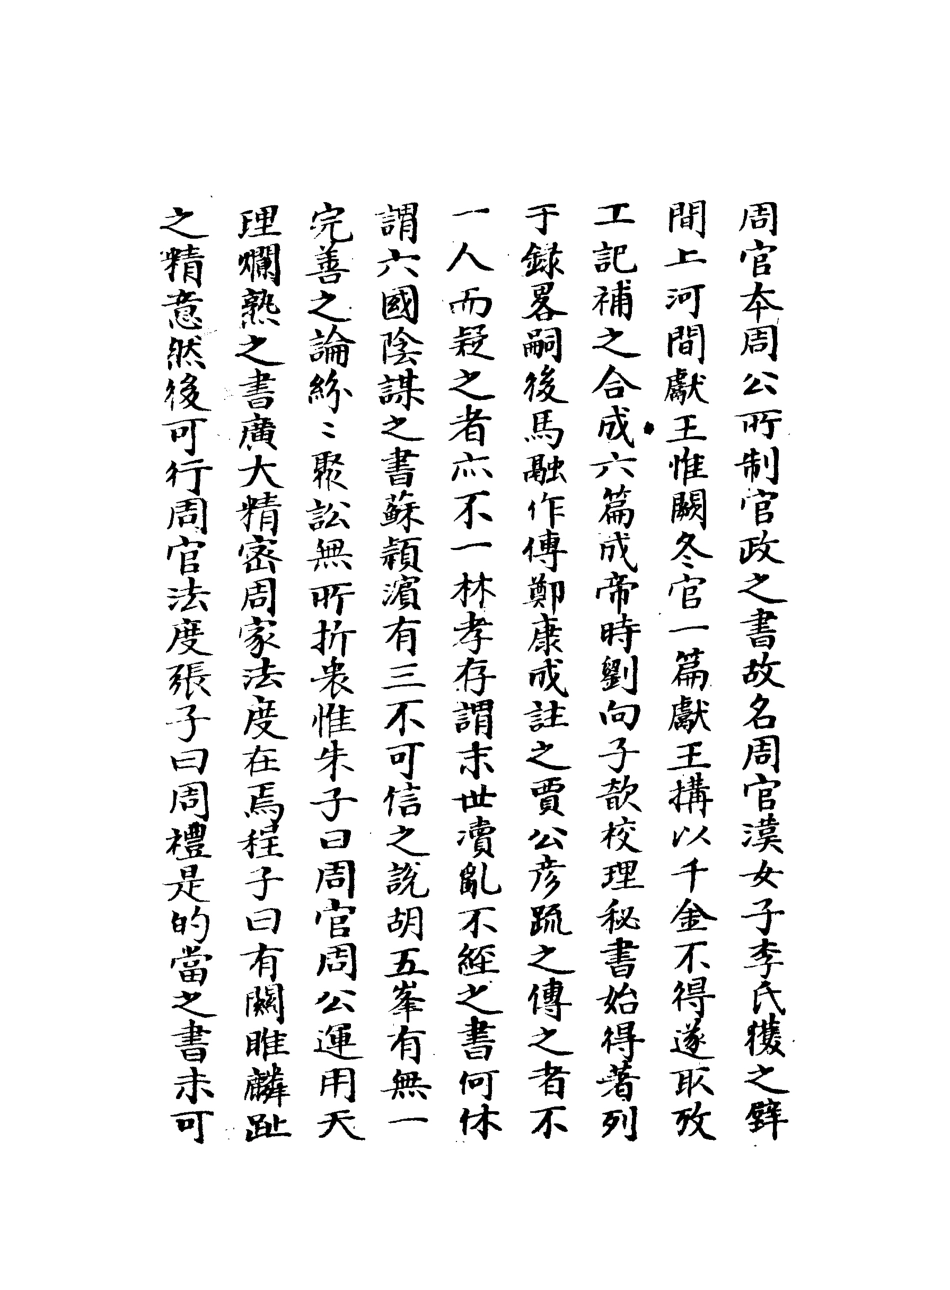 周官本周公所制官政之書故名周官漢女子李氏獲之壁
間上河間獻王惟闕冬官一篇獻王購以千金不得遂取攷
工記補之合成六篇成帝時劉向子歆校理秘書始得著列
于録畧嗣後馬融作傳鄭康成註之賈公彥疏之傳之者不
一人而疑之者亦不一林孝存謂末世瀆亂不經之書何休
謂六國陰謀之書蘇潁濱有三不可信之說胡五峯有無一
完善之論紛〻聚訟無所折衷惟朱子曰周官周公運用天
理爛熟之書廣大精密周家法度在焉程子曰有關雎麟趾
之精意然後可行周官法度張子曰周禮是的當之書未可